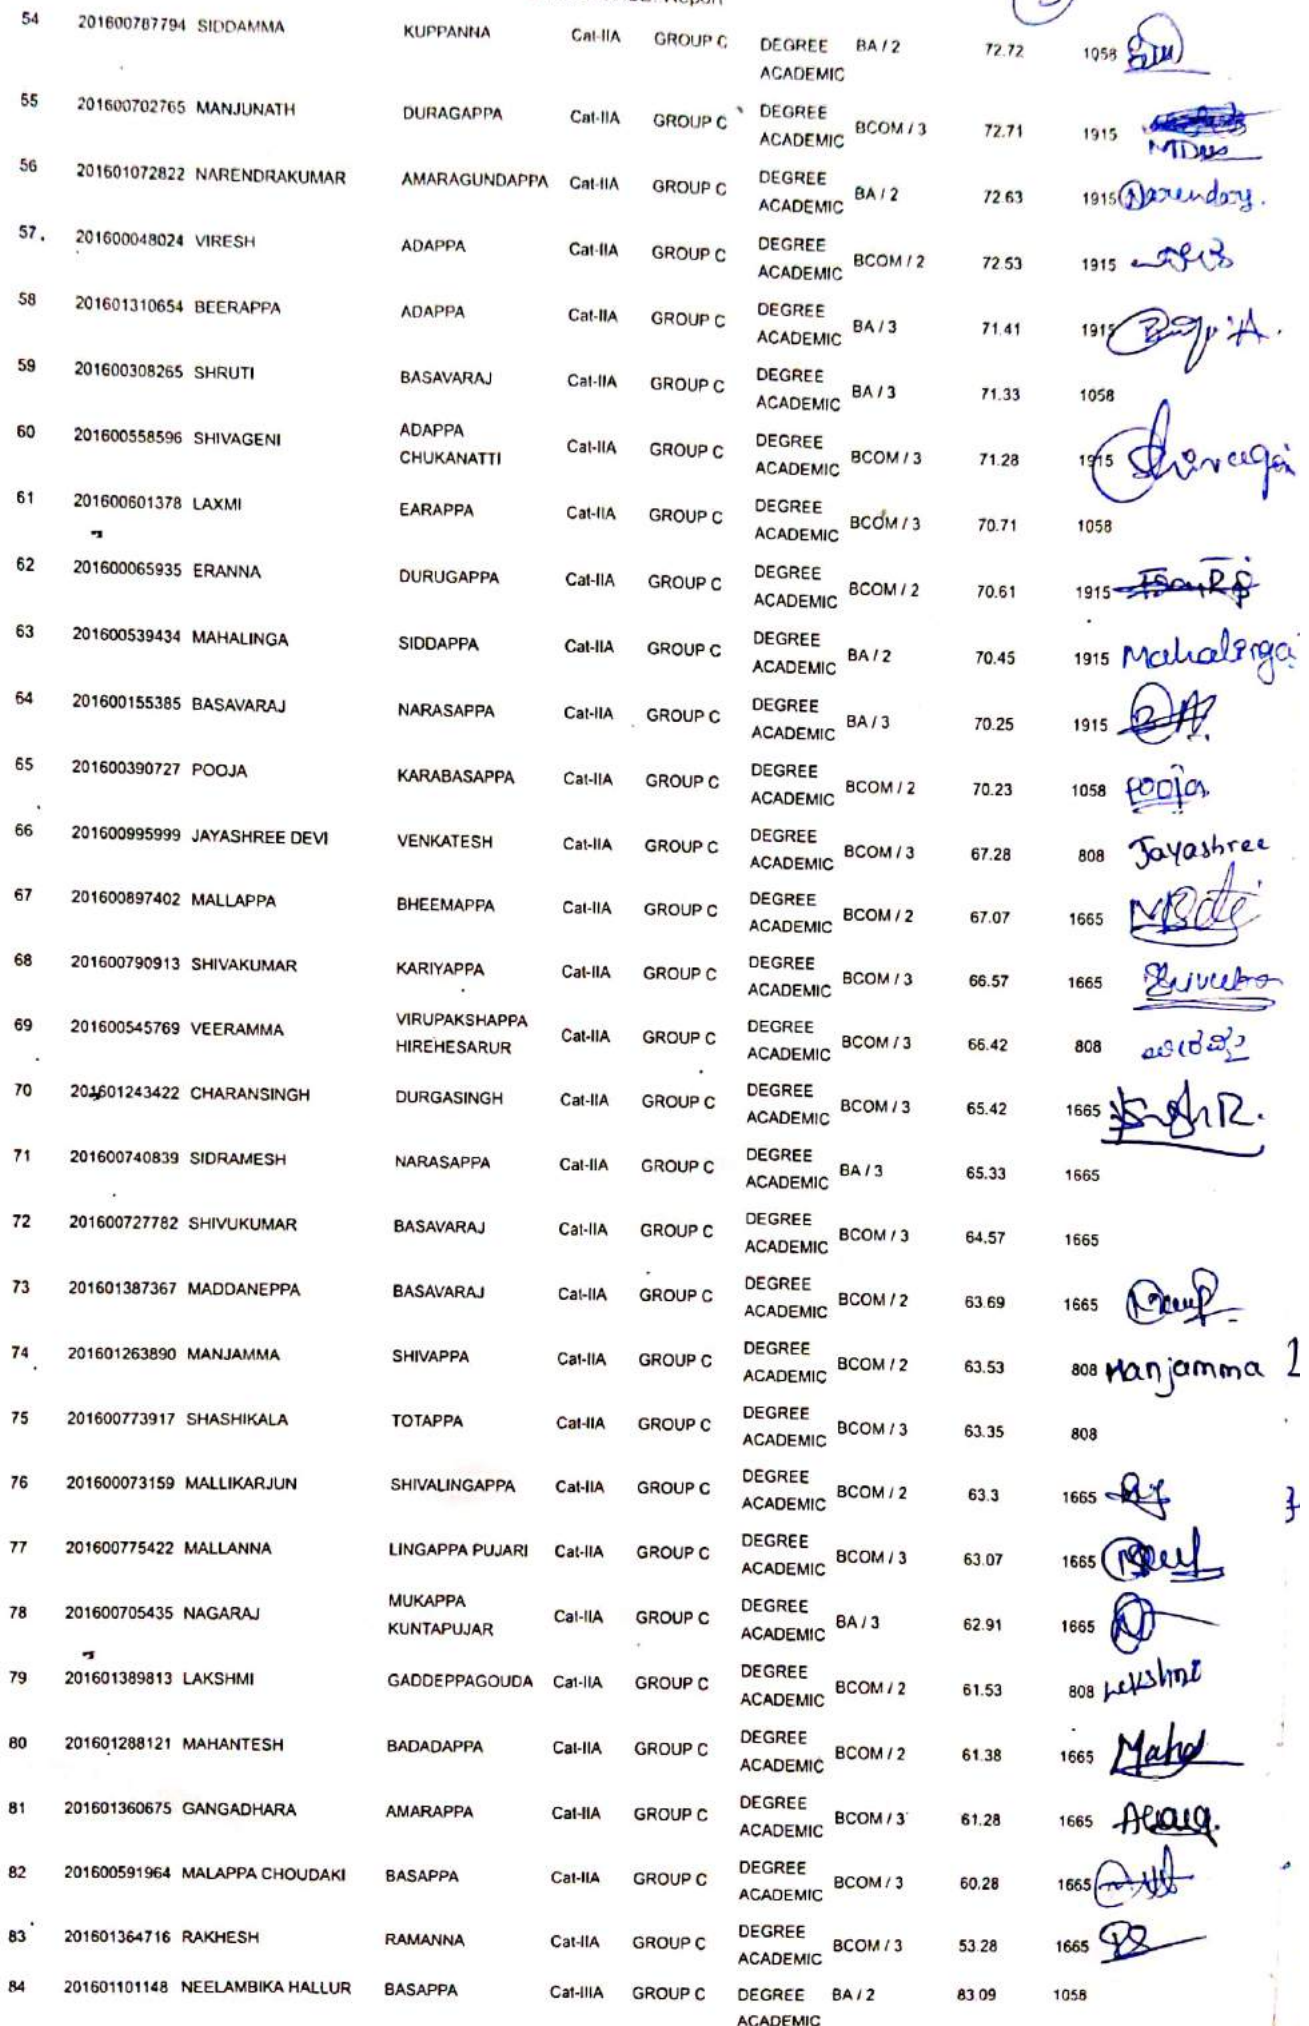 Report
54 201600787794 SIDDAMMA KUPPANNA Cat-IIA GROUP C DEGREE BA / 2 72.72 1058
ACADEMIC
55 201600702765 MANJUNATH DURAGAPPA Cat-IIA GROUP C DEGREE ACADEMIC BCOM / 3 72.71 1915
56 201601072822 NARENDRAKUMAR AMARAGUNDAPPA Cat-IIA GROUP C DEGREE ACADEMIC BA / 2 72.63 1915
57 201600048024 VIRESH ADAPPA Cat-IIA GROUP C DEGREE ACADEMIC BCOM / 2 72.53 1915
58 201601310654 BEERAPPA ADAPPA Cat-IIA GROUP C DEGREE ACADEMIC BA / 3 71.41 1915
59 201600308265 SHRUTI BASAVARAJ Cat-IIA GROUP C DEGREE ACADEMIC BA / 3 71.33 1058
60 201600558596 SHIVAGENI ADAPPA CHUKANATTI Cat-IIA GROUP C DEGREE ACADEMIC BCOM / 3 71.28 1915
61 201600601378 LAXMI EARAPPA Cat-IIA GROUP C DEGREE ACADEMIC BCOM / 3 70.71 1058
62 201600065935 ERANNA DURUGAPPA Cat-IIA GROUP C DEGREE ACADEMIC BCOM / 2 70.61 1915
63 201600539434 MAHALINGA SIDDAPPA Cat-IIA GROUP C DEGREE ACADEMIC BA / 2 70.45 1915 Mahalinga
64 201600155385 BASAVARAJ NARASAPPA Cat-IIA GROUP C DEGREE ACADEMIC BA / 3 70.25 1915
65 201600390727 POOJA KARABASAPPA Cat-IIA GROUP C DEGREE ACADEMIC BCOM / 2 70.23 1058 Pooja
66 201600995999 JAYASHREE DEVI VENKATESH Cat-IIA GROUP C DEGREE ACADEMIC BCOM / 3 67.28 808 Jayashree
67 201600897402 MALLAPPA BHEEMAPPA Cat-IIA GROUP C DEGREE ACADEMIC BCOM / 2 67.07 1665
68 201600790913 SHIVAKUMAR KARIYAPPA Cat-IIA GROUP C DEGREE ACADEMIC BCOM / 3 66.57 1665
69 201600545769 VEERAMMA VIRUPAKSHAPPA HIREHESARUR Cat-IIA GROUP C DEGREE ACADEMIC BCOM / 3 66.42 808
70 201601243422 CHARANSINGH DURGASINGH Cat-IIA GROUP C DEGREE ACADEMIC BCOM / 3 65.42 1665
71 201600740839 SIDRAMESH NARASAPPA Cat-IIA GROUP C DEGREE ACADEMIC BA / 3 65.33 1665
72 201600727782 SHIVUKUMAR BASAVARAJ Cat-IIA GROUP C DEGREE ACADEMIC BCOM / 3 64.57 1665
73 201601387367 MADDANEPPA BASAVARAJ Cat-IIA GROUP C DEGREE ACADEMIC BCOM / 2 63.69 1665
74 201601263890 MANJAMMA SHIVAPPA Cat-IIA GROUP C DEGREE ACADEMIC BCOM / 2 63.53 808 Manjamma
75 201600773917 SHASHIKALA TOTAPPA Cat-IIA GROUP C DEGREE ACADEMIC BCOM / 3 63.35 808
76 201600073159 MALLIKARJUN SHIVALINGAPPA Cat-IIA GROUP C DEGREE ACADEMIC BCOM / 2 63.3 1665
77 201600775422 MALLANNA LINGAPPA PUJARI Cat-IIA GROUP C DEGREE ACADEMIC BCOM / 3 63.07 1665
78 201600705435 NAGARAJ MUKAPPA KUNTAPUJAR Cat-IIA GROUP C DEGREE ACADEMIC BA / 3 62.91 1665
79 201601389813 LAKSHMI GADDEPPAGOUDA Cat-IIA GROUP C DEGREE ACADEMIC BCOM / 2 61.53 808
80 201601288121 MAHANTESH BADADAPPA Cat-IIA GROUP C DEGREE ACADEMIC BCOM / 2 61.38 1665
81 201601360675 GANGADHARA AMARAPPA Cat-IIA GROUP C DEGREE ACADEMIC BCOM / 3 61.28 1665
82 201600591964 MALAPPA CHOUDAKI BASAPPA Cat-IIA GROUP C DEGREE ACADEMIC BCOM / 3 60.28 1665
83 201601364716 RAKHESH RAMANNA Cat-IIA GROUP C DEGREE ACADEMIC BCOM / 3 53.28 1665
84 201601101148 NEELAMBIKA HALLUR BASAPPA Cat-IIIA GROUP C DEGREE BA / 2 83.09 1058
ACADEMIC